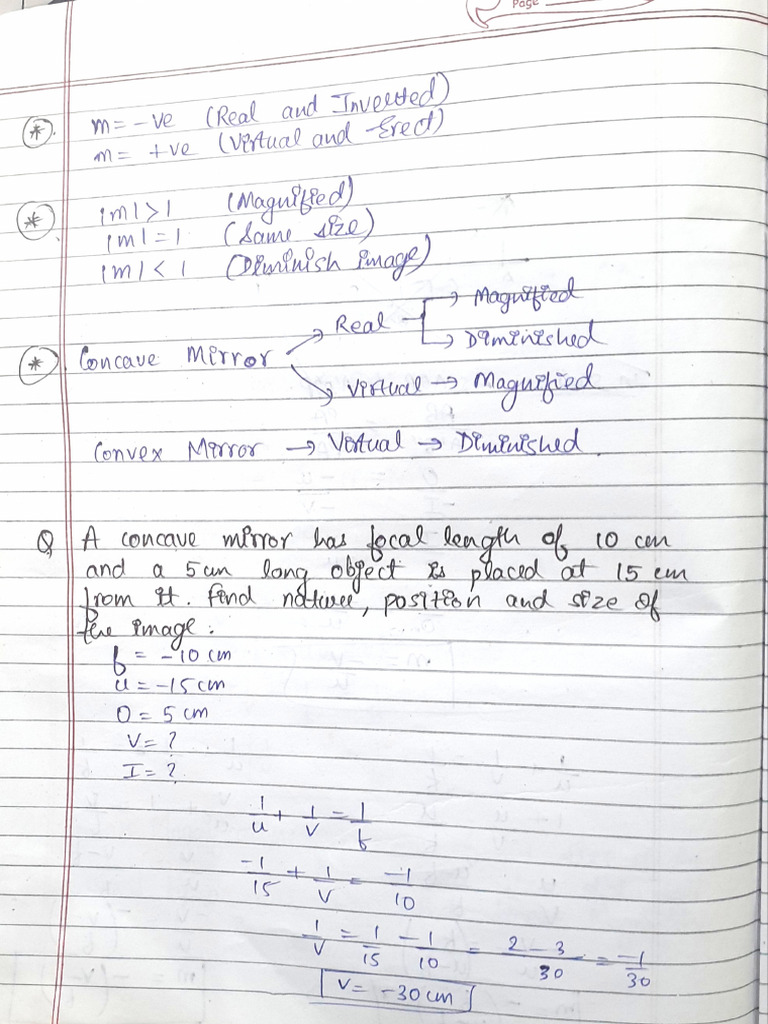 Page
* m = -ve (Real and Inverted)
m = +ve (Virtual and Erect)
* |m| > 1 (Magnified)
|m| = 1 (Same size)
|m| < 1 (Diminish image)
* Concave Mirror → Real → Magnified
→ Diminished
→ Virtual → Magnified
Convex Mirror → Virtual → Diminished
Q A concave mirror has focal length of 10 cm
and a 5cm long object is placed at 15 cm
from it. Find nature, position and size of
the image:
f = -10 cm
u = -15 cm
O = 5 cm
V = ?
I = ?
1/u + 1/v = 1/f
-1/15 + 1/v = -1/10
1/v = 1/15 - 1/10 = 2 - 3/30 = -1/30
V = -30 cm